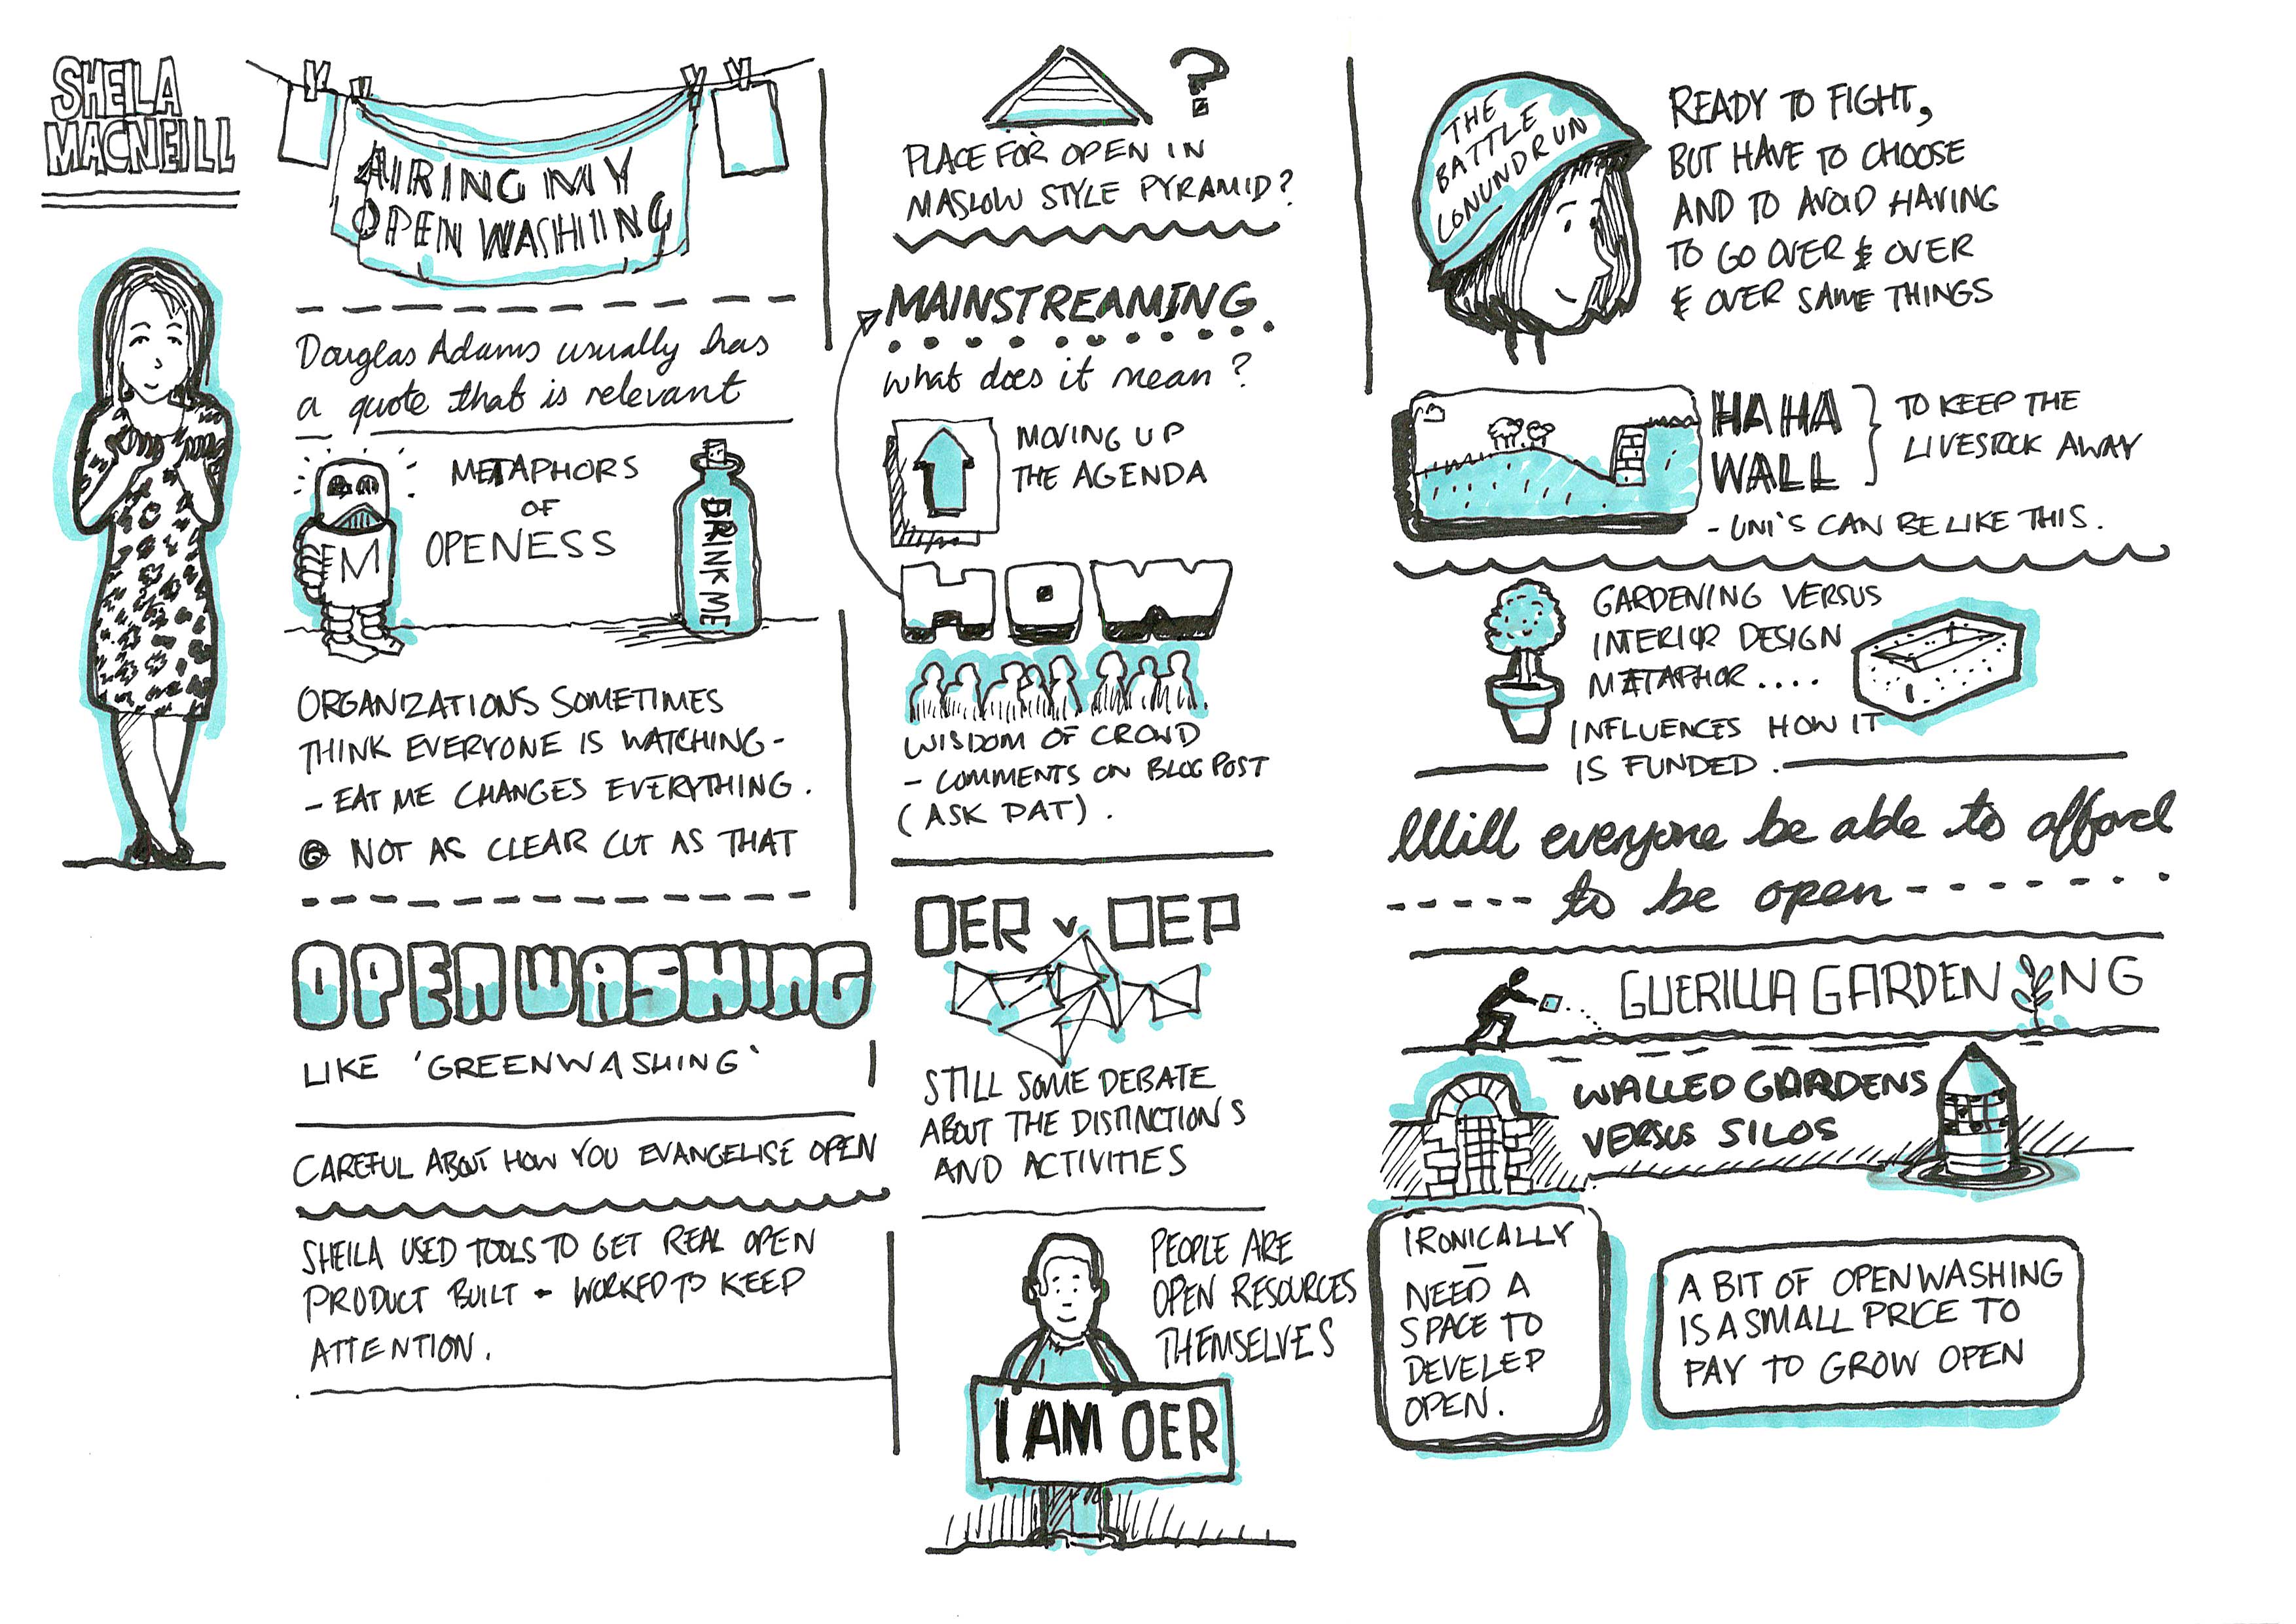 SHEILA
MACNEILL
AIRING MY
OPEN WASHING
Douglas Adams usually has
a quote that is relevant
METAPHORS
OF
OPENESS
M
DRINK ME
ORGANIZATIONS SOMETIMES
THINK EVERYONE IS WATCHING -
- EAT ME CHANGES EVERYTHING.
NOT AS CLEAR CUT AS THAT
OPENWASHING
LIKE 'GREENWASHING'
CAREFUL ABOUT HOW YOU EVANGELISE OPEN
SHEILA USED TOOLS TO GET REAL OPEN
PRODUCT BUILT - WORKED TO KEEP
ATTENTION.
?
PLACE FOR OPEN IN
MASLOW STYLE PYRAMID?
MAINSTREAMING
what does it mean?
MOVING UP
THE AGENDA
HOW
WISDOM OF CROWD
- COMMENTS ON BLOG POST
(ASK PAT).
OER v OEP
STILL SOME DEBATE
ABOUT THE DISTINCTIONS
AND ACTIVITIES
PEOPLE ARE
OPEN RESOURCES
THEMSELVES
I AM OER
THE
BATTLE
CONUNDRUN
READY TO FIGHT,
BUT HAVE TO CHOOSE
AND TO AVOID HAVING
TO GO OVER & OVER
& OVER SAME THINGS
HAHA
WALL
TO KEEP THE
LIVESTOCK AWAY
- UNI'S CAN BE LIKE THIS.
GARDENING VERSUS
INTERIOR DESIGN
METAPHOR....
INFLUENCES HOW IT
IS FUNDED.
Will everyone be able to afford
to be open
GUERILLA GARDENING
WALLED GARDENS
VERSUS SILOS
IRONICALLY
NEED A
SPACE TO
DEVELEP
OPEN.
A BIT OF OPENWASHING
IS A SMALL PRICE TO
PAY TO GROW OPEN